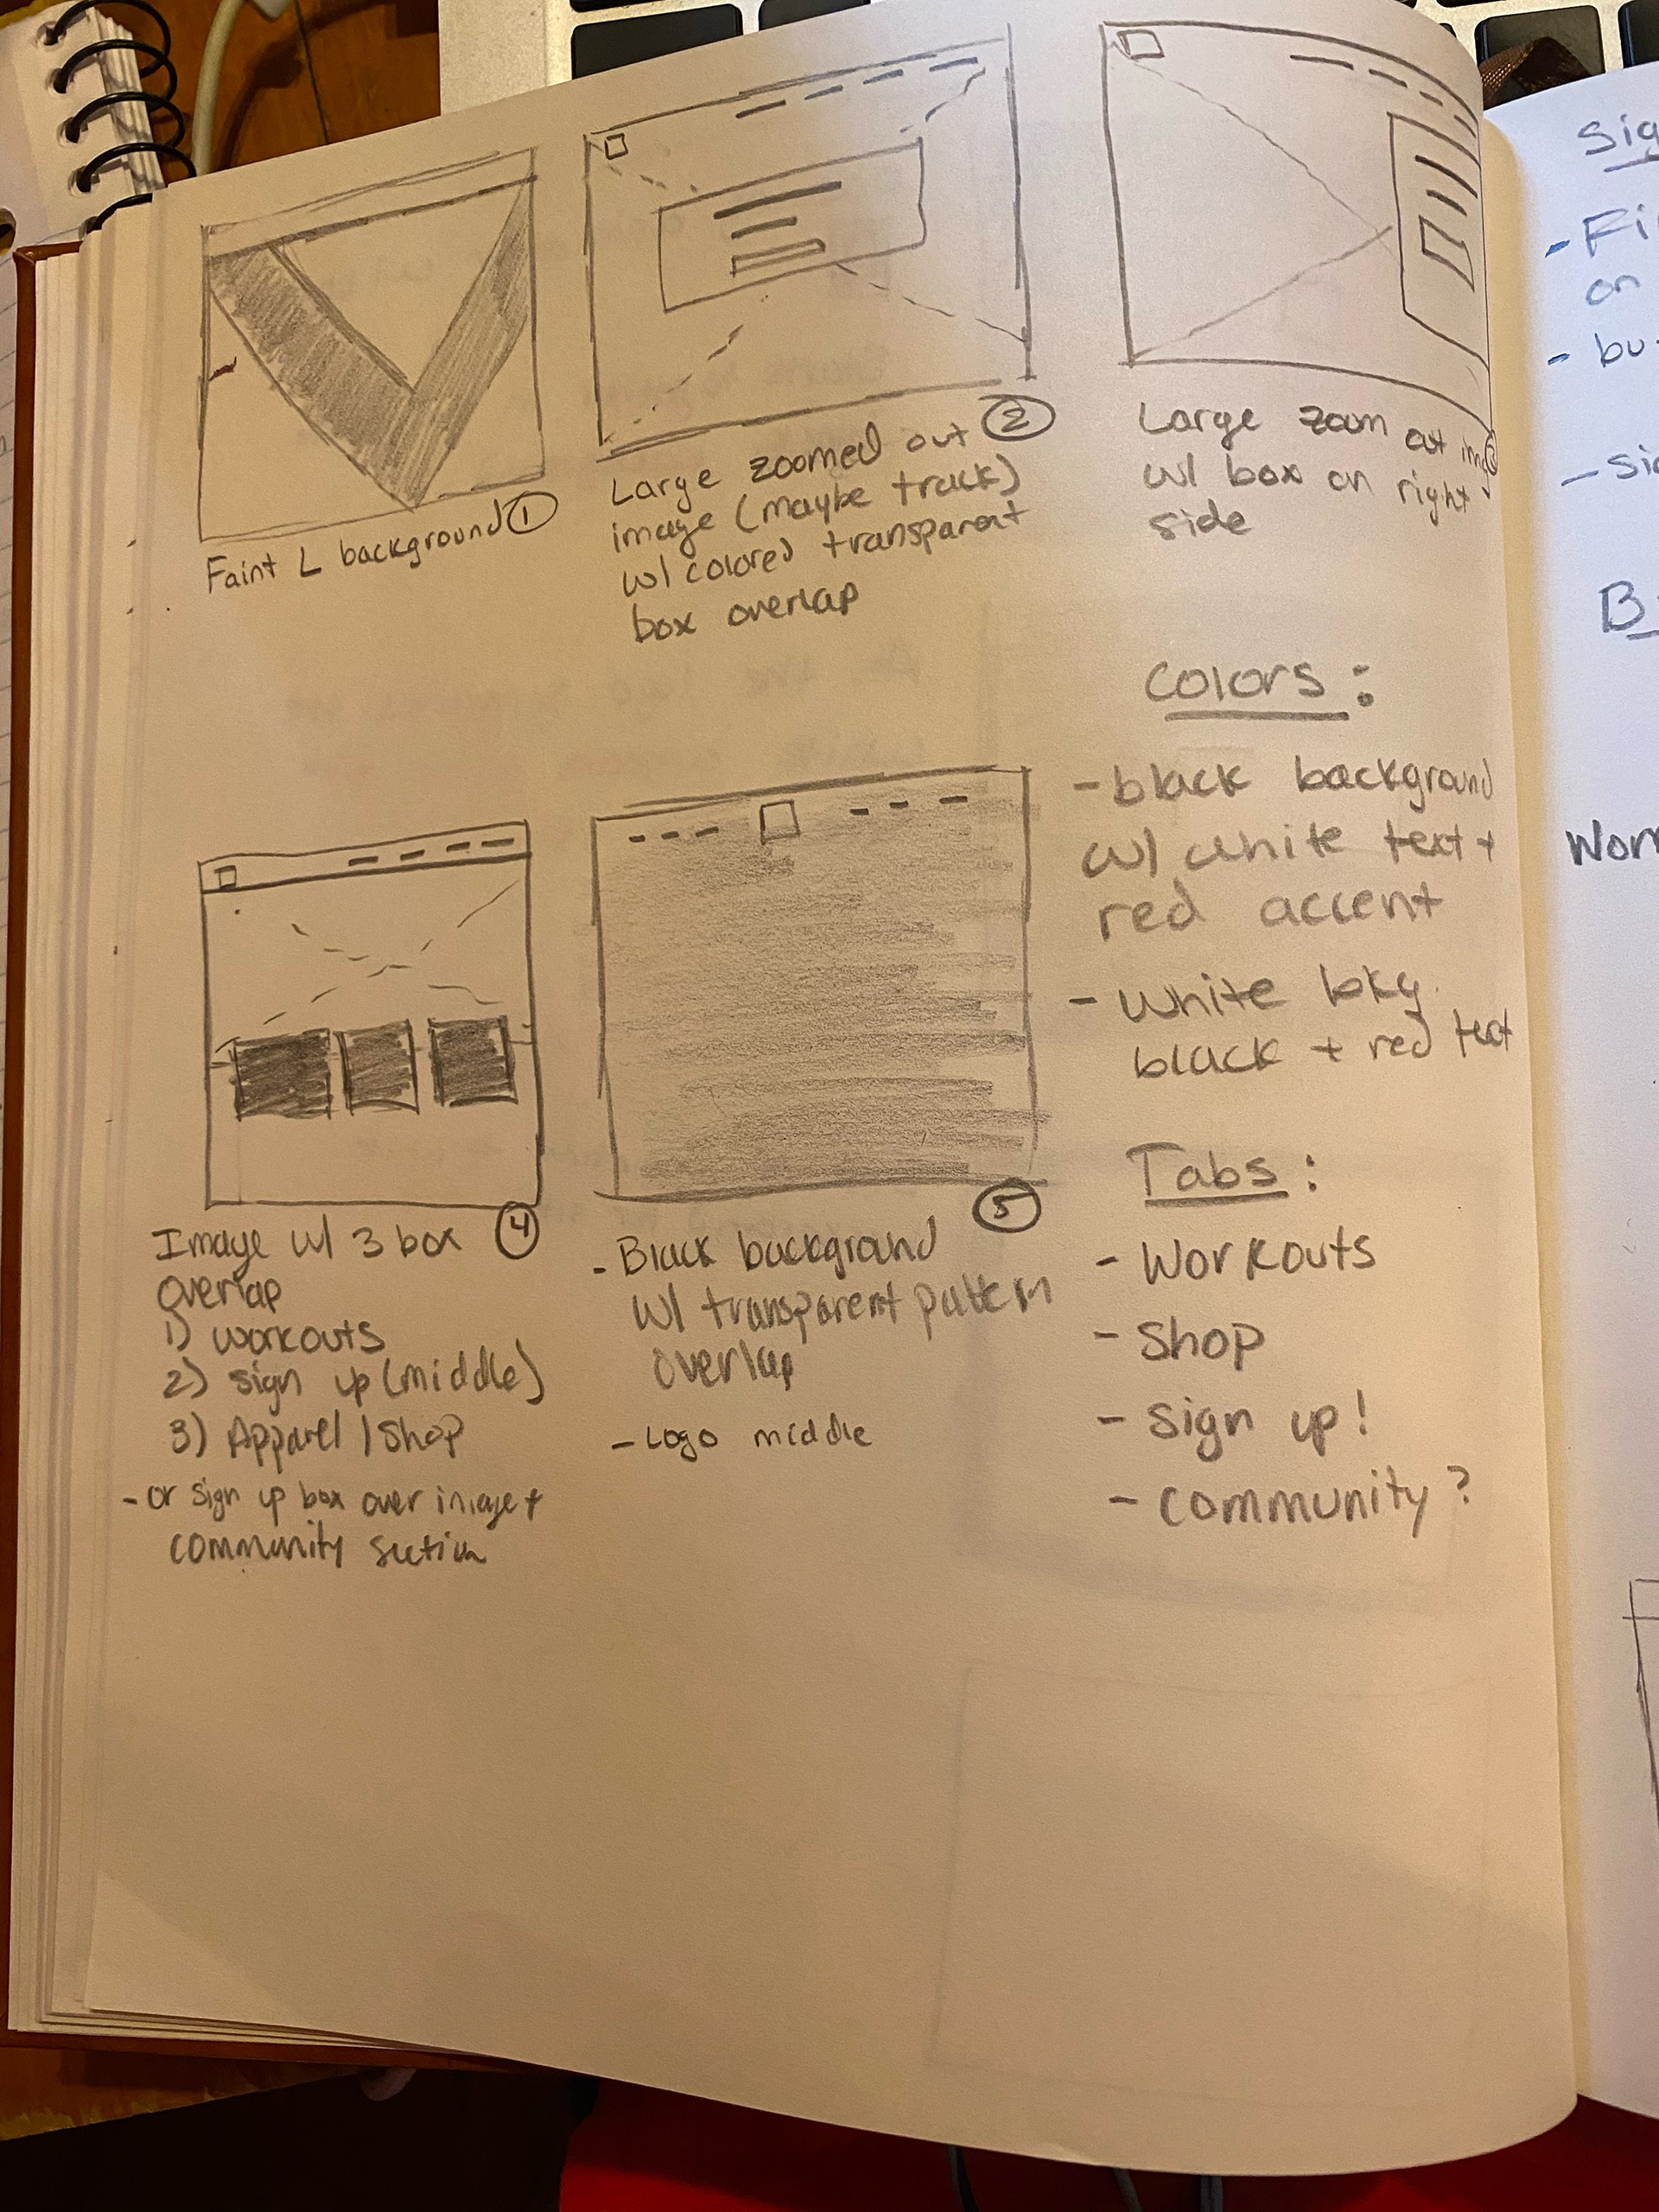 Faint L background ①
Large zoomed out ②
image (maybe track)
w/ colored transparent
box overlap
Large zoom out img
w/ box on right
side
Colors:
- black background
w/ white text +
red accent
- white bkg.
black + red text
Tabs:
- Workouts
- Shop
- Sign up!
- Community?
Image w/ 3 box ④
overlap
1) workouts
2) sign up (middle)
3) Apparel / Shop
- or sign up box over image +
community section
⑤
- Black background
w/ transparent pattern
overlap
- Logo middle
Sig
- Fi
on
- bu
- si
B
Wor